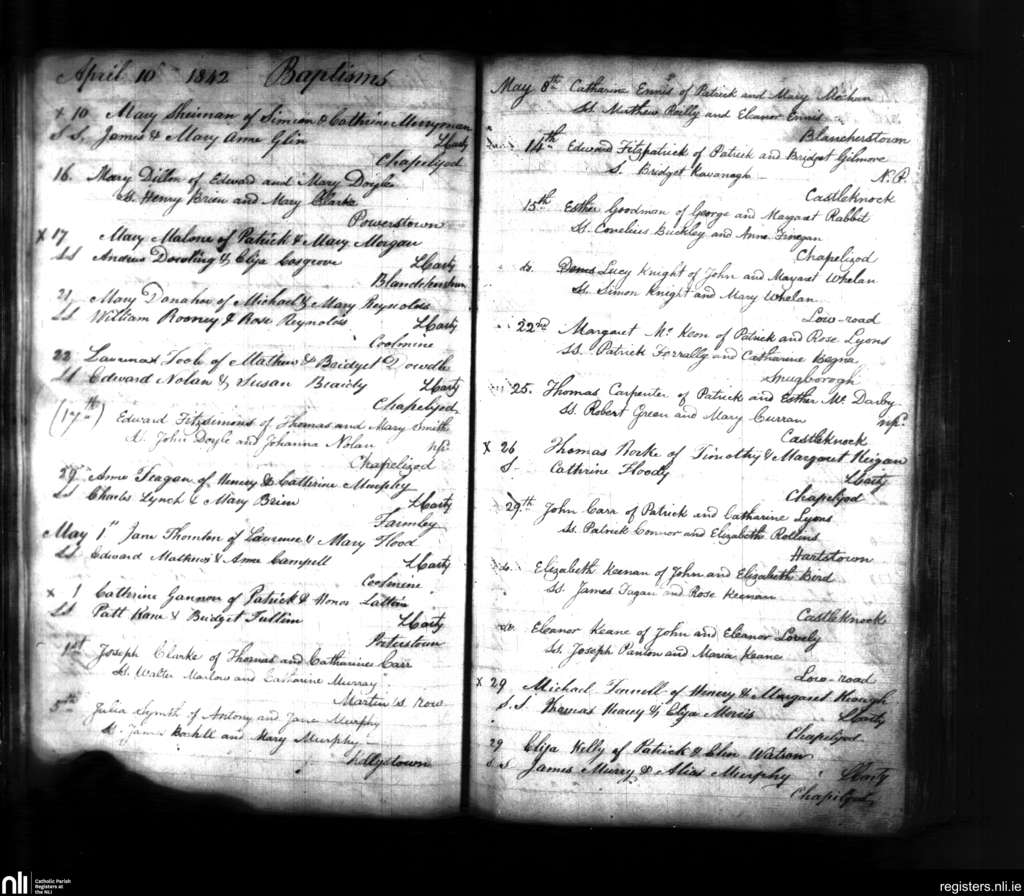 April 10th 1842 Baptisms
x 10 Mary Sheinan of Simeon & Cathrine Merryman
S S. James & Mary Anne Glin LHarty
Chapelizod
16. Mary Dillon of Edward and Mary Doyle
Ss. Henry Brien and Mary Clarke
Powerstown
x 17 Mary Malone of Patrick & Mary Morgan
SS Andrew Dowling & Eliza Cosgrove LHarty
21 Mary Donaher of Michael & Mary Reynolds
SS William Rooney & Rose Reynolds LHarty
Coolmine
22 Toole of Mathew & Bridget Dowdle
SS Edward Nolan & Susan Braidy LHarty
Chapelizod
(17th) Edward Fitzsimons of Thomas and Mary Smith
Ss. John Doyle and Johanna Nolan
Chapelizod
Anne Feagan of Henery & Catherine Murphy
SS Charles Lynch & Mary Brien LHarty
Farmley
May 1st Jane Thornton of Laurence & Mary Flood
SS Edward Mathews & Anne Campell LHarty
Coolmine
x 1 Catherine Gannon of Patrick & Honor Lattin
SS Patt Kane & Bridget Tullin LHarty
Peterstown
1st Joseph Clarke of Thomas and Catharine Carr
Ss. Walter Marlow and Catharine Murray
Martin's row
5th Julia Smyth of Antony and Jane Murphy
and Mary Murphy
Killystown
May 8th Catharine Ennis of Patrick and Mary
Ss. Matthew Reilly and Eleanor Ennis
Blancherstown
14th Edward Fitzpatrick of Patrick and Bridget Gilmore
S. Bridget Kavanagh N.P.
Castleknock
15th Esther Goodman of George and Margaret Rabbit
Ss. Cornelius Buckley and Anne Finegan
Chapelizod
do. Lucy Knight of John and Margaret Whelan
Ss. Simon Knight and Mary Whelan
Low-road
22nd Margaret Mc Keon of Patrick and Rose Lyons
SS. Patrick Forrally and Catharine Begna
Snugborogh
25. Thomas Carpenter of Patrick and Esther Mc Darby
Ss. Robert Green and Mary Curran
Castleknock
x 26 Thomas Rorke of Timothy & Margaret Keigan
S. Cathrine Floody LHarty
Chapelizod
29th John Carr of Patrick and Catharine Lyons
Ss. Patrick Connor and Elizabeth Rollins
Hartstown
do. Elizabeth Keenan of John and Elizabeth Berd
Ss. James Fagan and Rose Keenan
Castleknock
do. Eleanor Keane of John and Eleanor Lovely
Ss. Joseph Panton and Maria Keane
Low-road
x 29 Michael Fennell of Henery & Margaret Keough
S.S. Thomas Heavey & Eliza Morris LHarty
Chapelizod
29 Eliza Kelly of Patrick & Elien Watson
S S James Murry & Alias Murphy LHarty
Chapelizod
nli Catholic Parish
Registers at
the NLI
registers.nli.ie